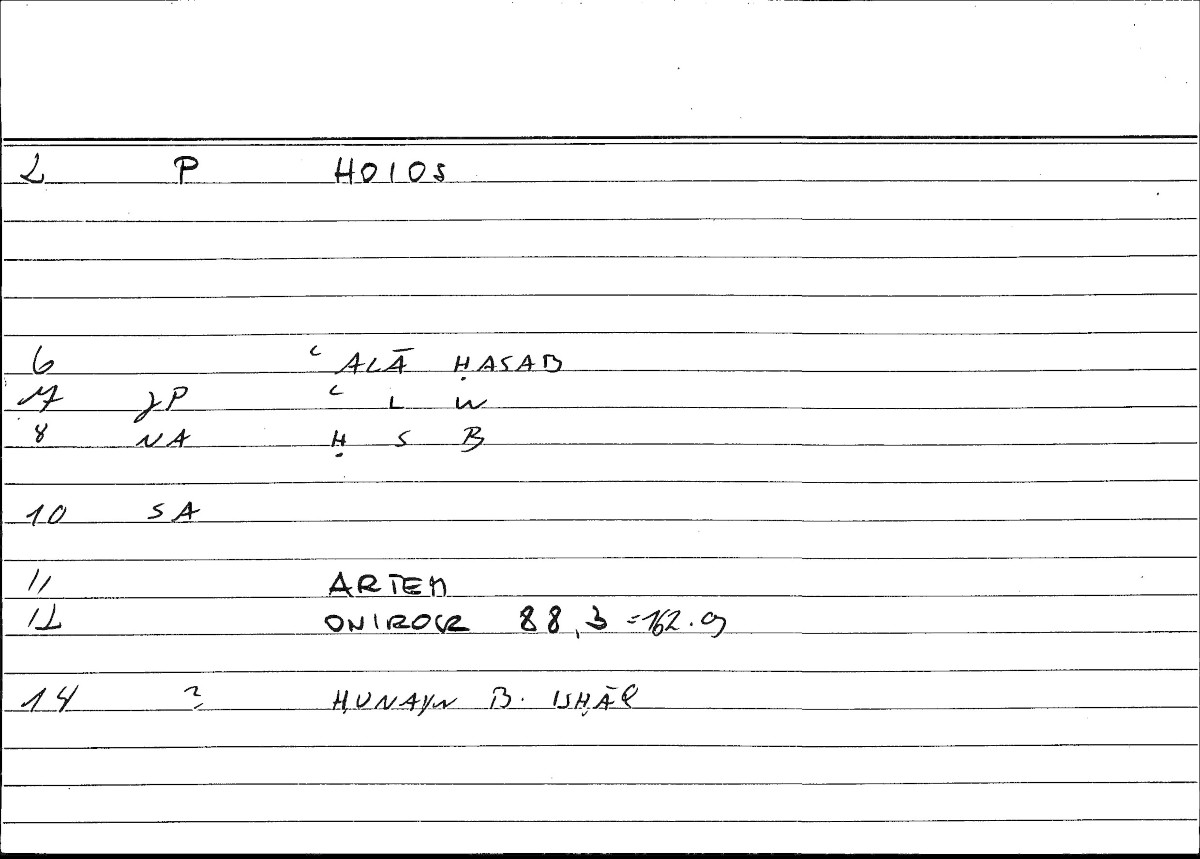 2 P HOIOS
6 ʿALĀ ḤASAB
7 JP ʿ L W
8 NA Ḥ S B
10 SA
11 ARTEM
12 ONIROCR 88,3 =162.9
14 ? ḤUNAYN B. ISḤĀQ